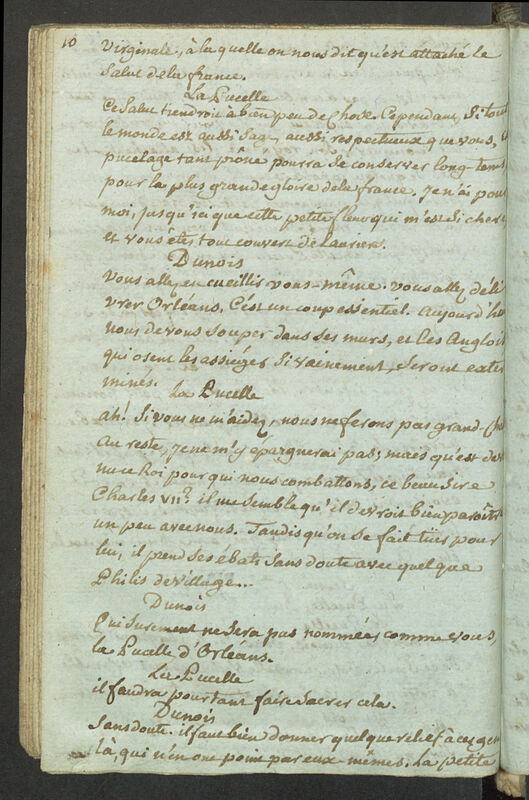 10
Virginale, à la quelle on nous dit qu'est attaché le
Salut de la france.
La Pucelle
Ce Salut tiendroit à bien peu de chose. Cependant, Si tout
le monde est aussi Sage, aussi respectueux que vous,
pucelage tant prôné pourra Se conserver long-tems
pour la plus grande gloire de la france. Je n'ai pour
moi, jusqu'ici que cette petite fleur qui m'est Si chere
et vous êtes tout couvert de Lauriers.
Dunois
Vous allez en cueillir vous-même. vous allez déli
vrer Orléans. C'est un coup essentiel. Aujourd'hui
nous devons Souper dans Ses murs, et les Anglois
qui osent les assiéger Si vainement, Seront exter
minés.
La Pucelle
ah! Si vous ne m'aidez, nous ne ferons pas grand-cho
Au reste, je ne m'y épargnerai pas; mais qu'est deve
nu ce Roi pour qui nous combattons, ce beau Sire
Charles VII? il me Semble qu'il devroit bien paroître
un peu avec nous. Tandis qu'on Se fait tuer pour
lui, il prend Ses ebats Sans doute avec quelque
Philis de Village...
Dunois
Qui Surement ne Sera pas nommée, comme vous,
la Pucelle d'Orléans.
La Pucelle
il faudra pourtant faire Sacrer cela.
Dunois
Sans doute. il faut bien donner quelque relief à ces gens
là, qui n'en ont point par eux-mêmes. La petite